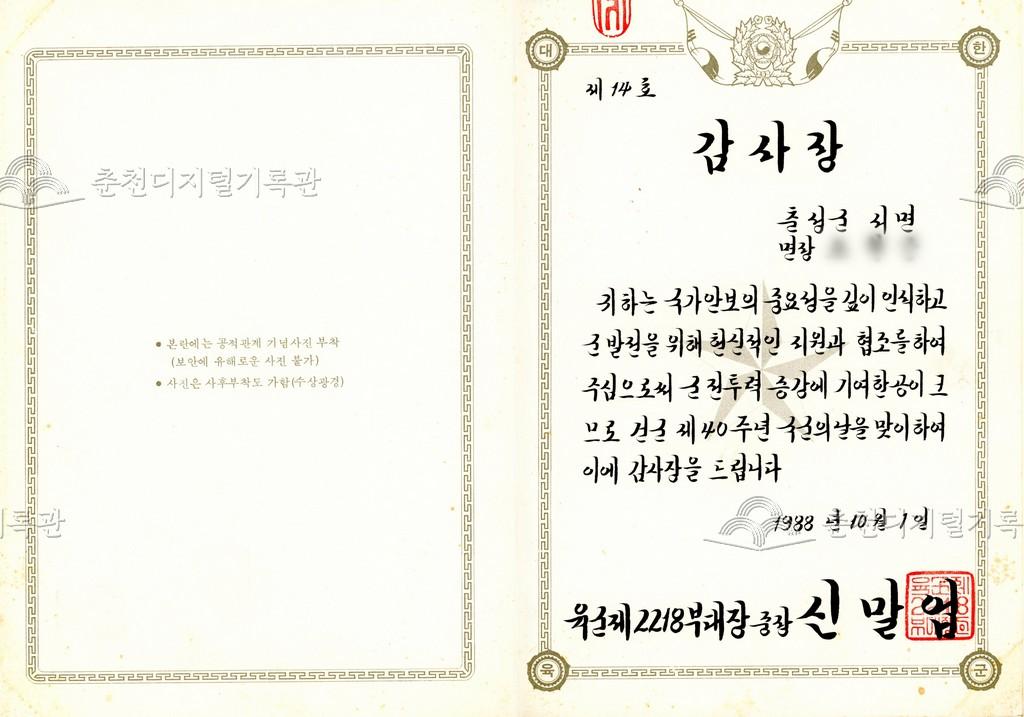 춘천디지털기록관
● 본란에는 공적관계 기념사진 부착
(보안에 유해로운 사진 불가)
● 사진은 사후부착도 가함(수상광경)
록관
대 한
제 14 호
감사장
춘성군 서면
면장
귀하는 국가안보의 중요성을 깊이 인식하고
군발전을 위해 헌신적인 지원과 협조를하여
주심으로써 군전투력 증강에 기여한공이 크
므로 건군 제40주년 국군의날을 맞이하여
이에 감사장을 드립니다
1988 년 10 월 1 일
춘천디지털기록
육군제2218부대장 중장 신말업
육 군